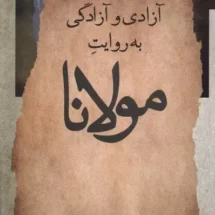 آزادی و آزادگی
به روایتِ
مولانا